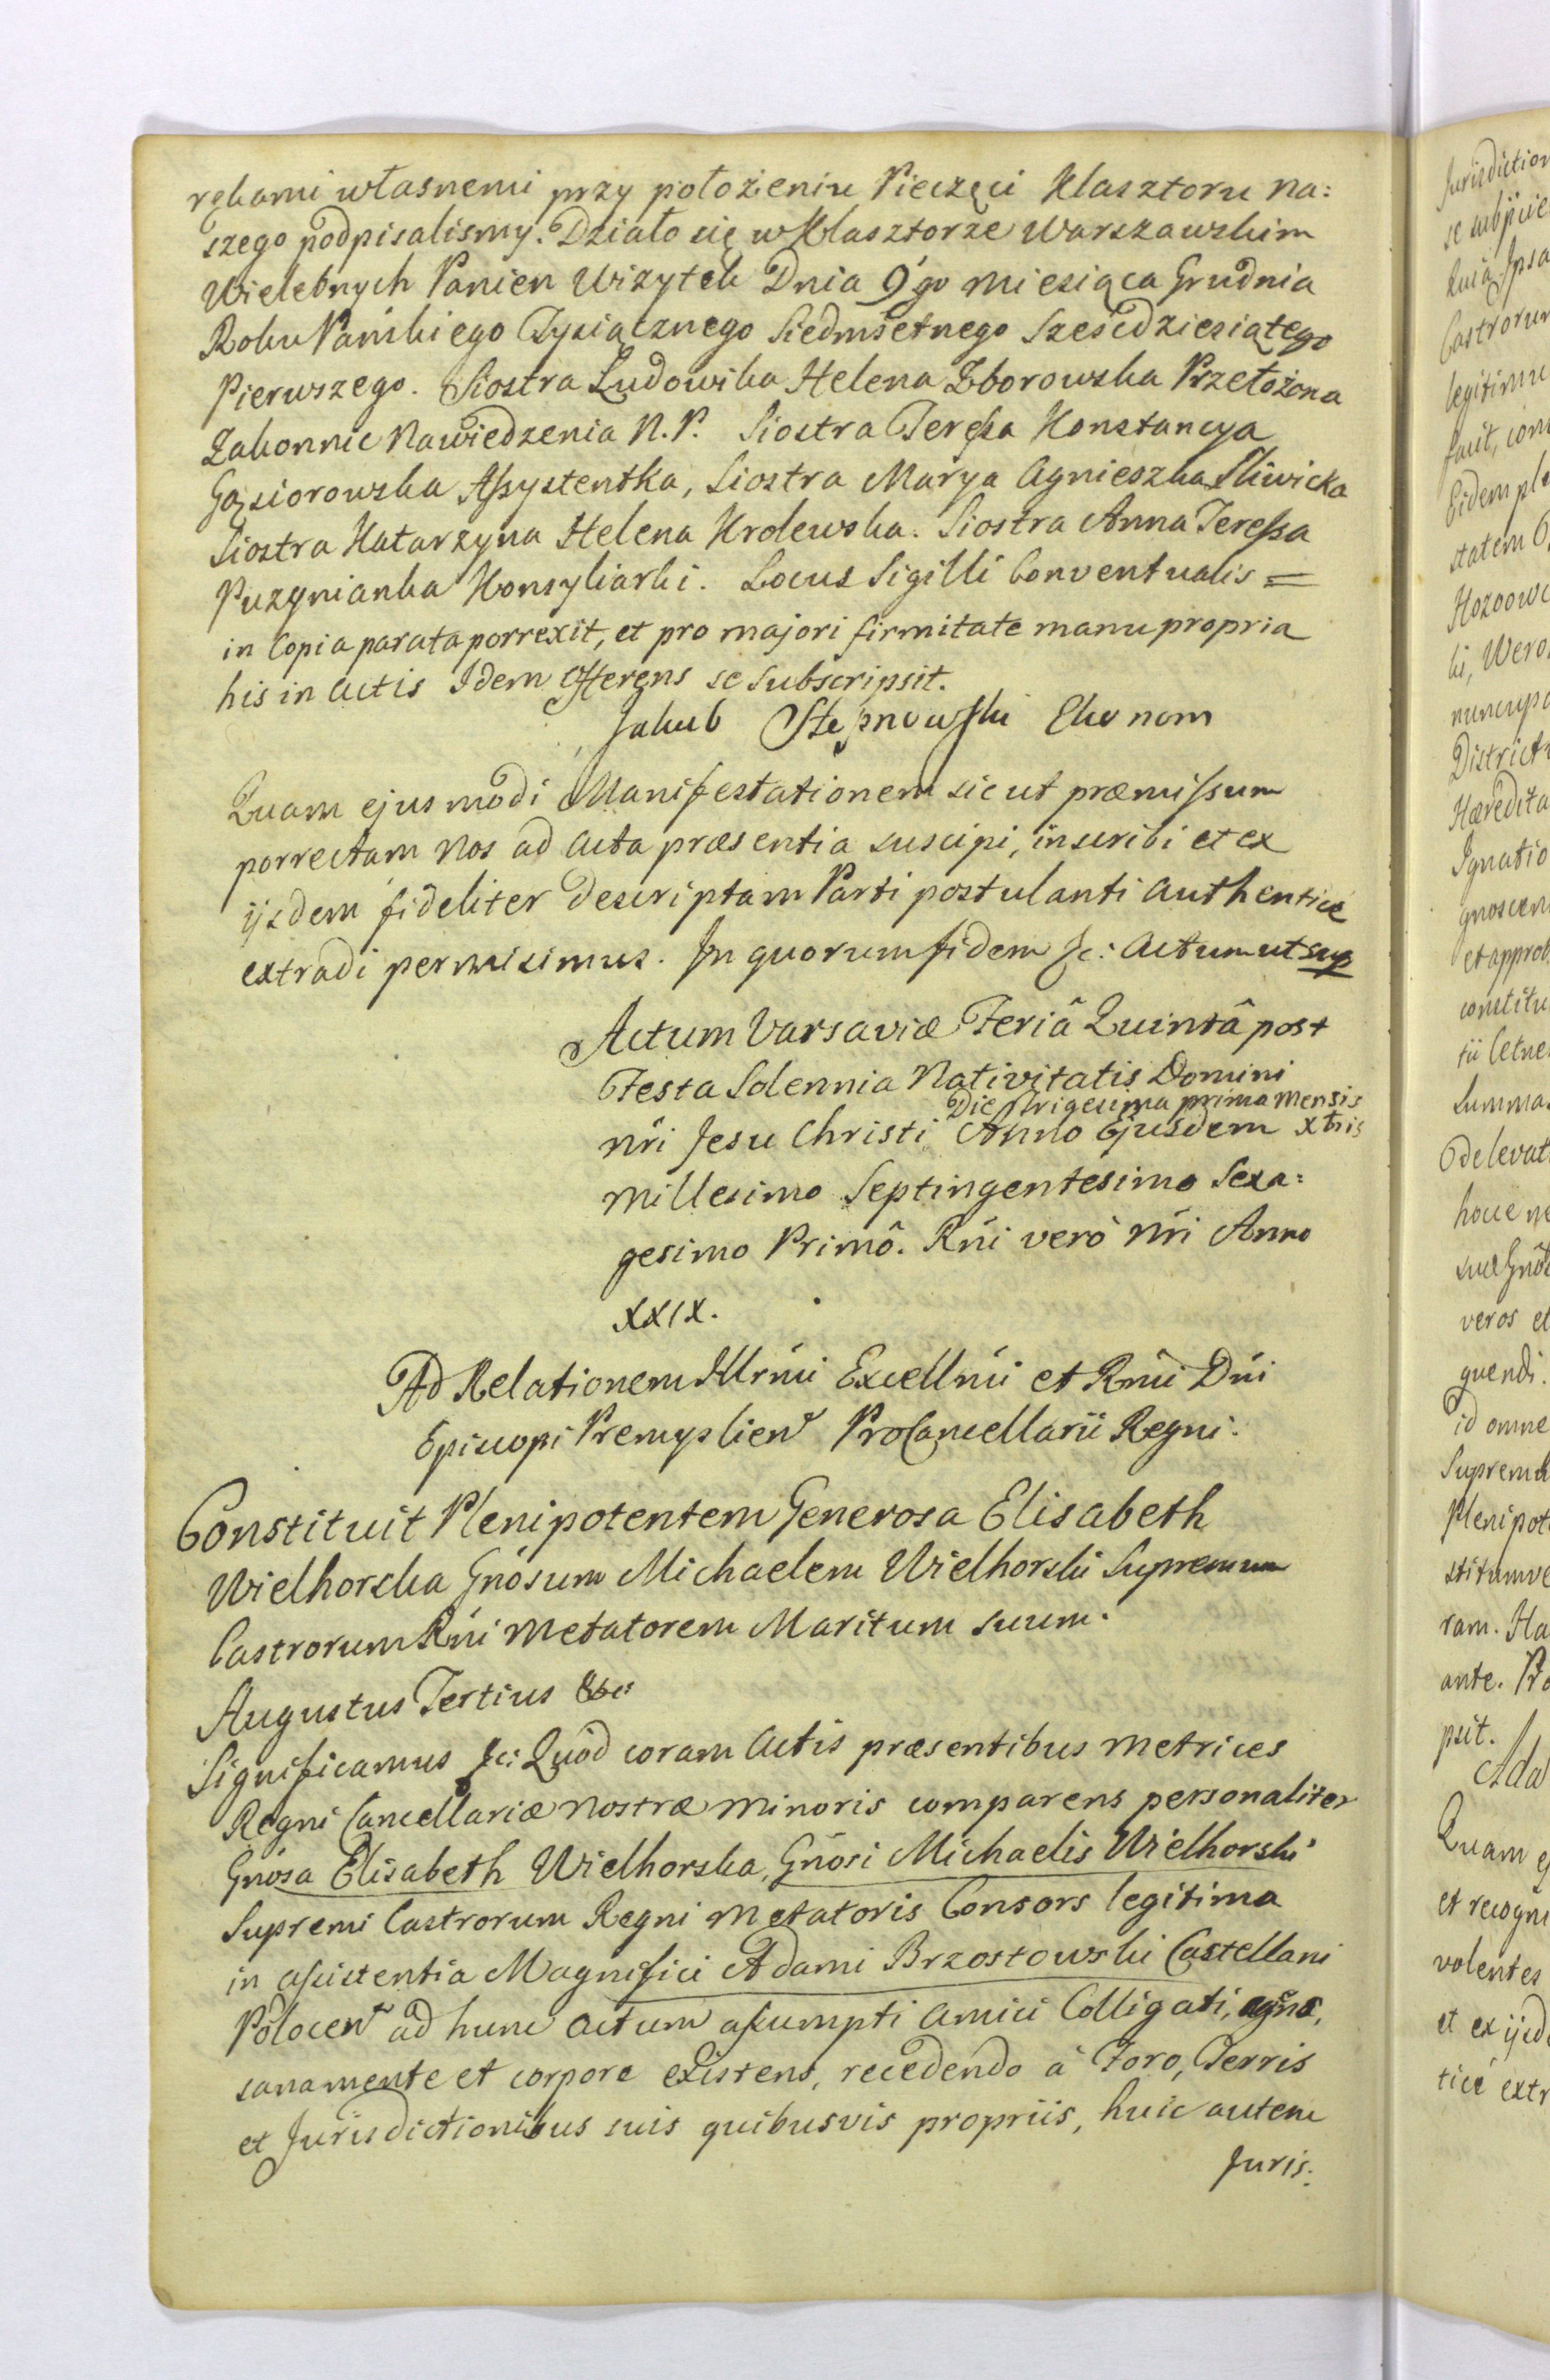 rękami własnemi przy położeniu Pieczęci Klasztoru na:
szego podpisalismy. Działo się w Klasztorze Warszawskim
Wielebnych Panien Wizytek Dnia 9go Miesiąca Grudnia
Roku Pańskiego Tysiącznego Siedmsetnego Sześćdziesiątego
Pierwszego. Siostra Ludowika Helena Zborowska Przełożona
Zakonnic Nawiedzenia N. P. Siostra Teressa Konstancya
Gąsiorowska Assystentka, Siostra Marya Agnieszka Sliwicka
Siostra Katarzyna Helena Krolewska. Siostra Anna Teressa
Puzynianka Konsyliarki. Locus Sigilli Conventualis =
in Copia parata porrexit, et pro majori firmitate manu propria
his in Actis Idem Offerens se Subscripsit.
Jakub Stępnowski Ekonom
Quam ejusmodi Manifestationem sicut præmissum
porrectam Nos ad Acta præsentia suscipi, inscribi et ex
ijsdem fideliter descriptam Parti postulanti Authenticè
extradi permisimus. In quorum fidem &c: Actum ut sup
Actum Varsaviæ Feriâ Quintâ post
Festa Solennia Nativitatis Domini
Die Trigesima prima Mensis
nri Jesu Christi Anno Ejusdem xbris
Millesimo Septingentesimo Sexa:
gesimo Primô. Rni verò Nri Anno
XXIX.
Ad Relationem Illrmi Excellmi et Rmi Dni
Episcopi Premyslien ProCancellarii Regni.
Constituit Plenipotentem Generosa Elisabeth
Wielhorska Gnosum Michaelem Wielhorski Supremum
Castrorum Rni Metatorem Maritum suum.
Augustus Tertius &c:
Significamus &c: Quod coram Actis præsentibus Metrices
Regni Cancellariæ Nostræ Minoris comparens personaliter
Gnosa Elisabeth Wielhorska, Gnosi Michaelis Wielhorski
Supremi Castrorum Regni Metatoris Consors legitima
in assistentia Magnifici Adami Brzostowski Castellani
Polocen ad hunc Actum assumpti Amici Colligati,
sana mente et corpore existens, recedendo à Foro, Terris
et Jurisdictionibus suis quibusvis propriis, huic autem
Juris: